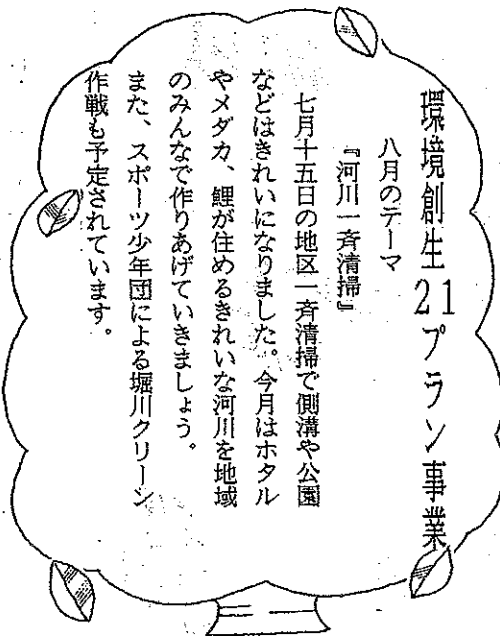 環境創生21プラン事業
八月のテーマ
『河川一斉清掃』
七月十五日の地区一斉清掃で側溝や公園
などはきれいになりました。今月はホタル
やメダカ、鯉が住めるきれいな河川を地域
のみんなで作りあげていきましょう。
また、スポーツ少年団による堀川クリーン
作戦も予定されています。